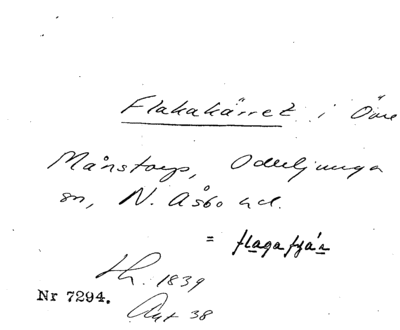 Flakakärret i Övre
Månstorp, Oderljunga
sn, N. Åsbo hd.
= flagatjá'r
Lh. 1839
Nr 7294.
Ant 38